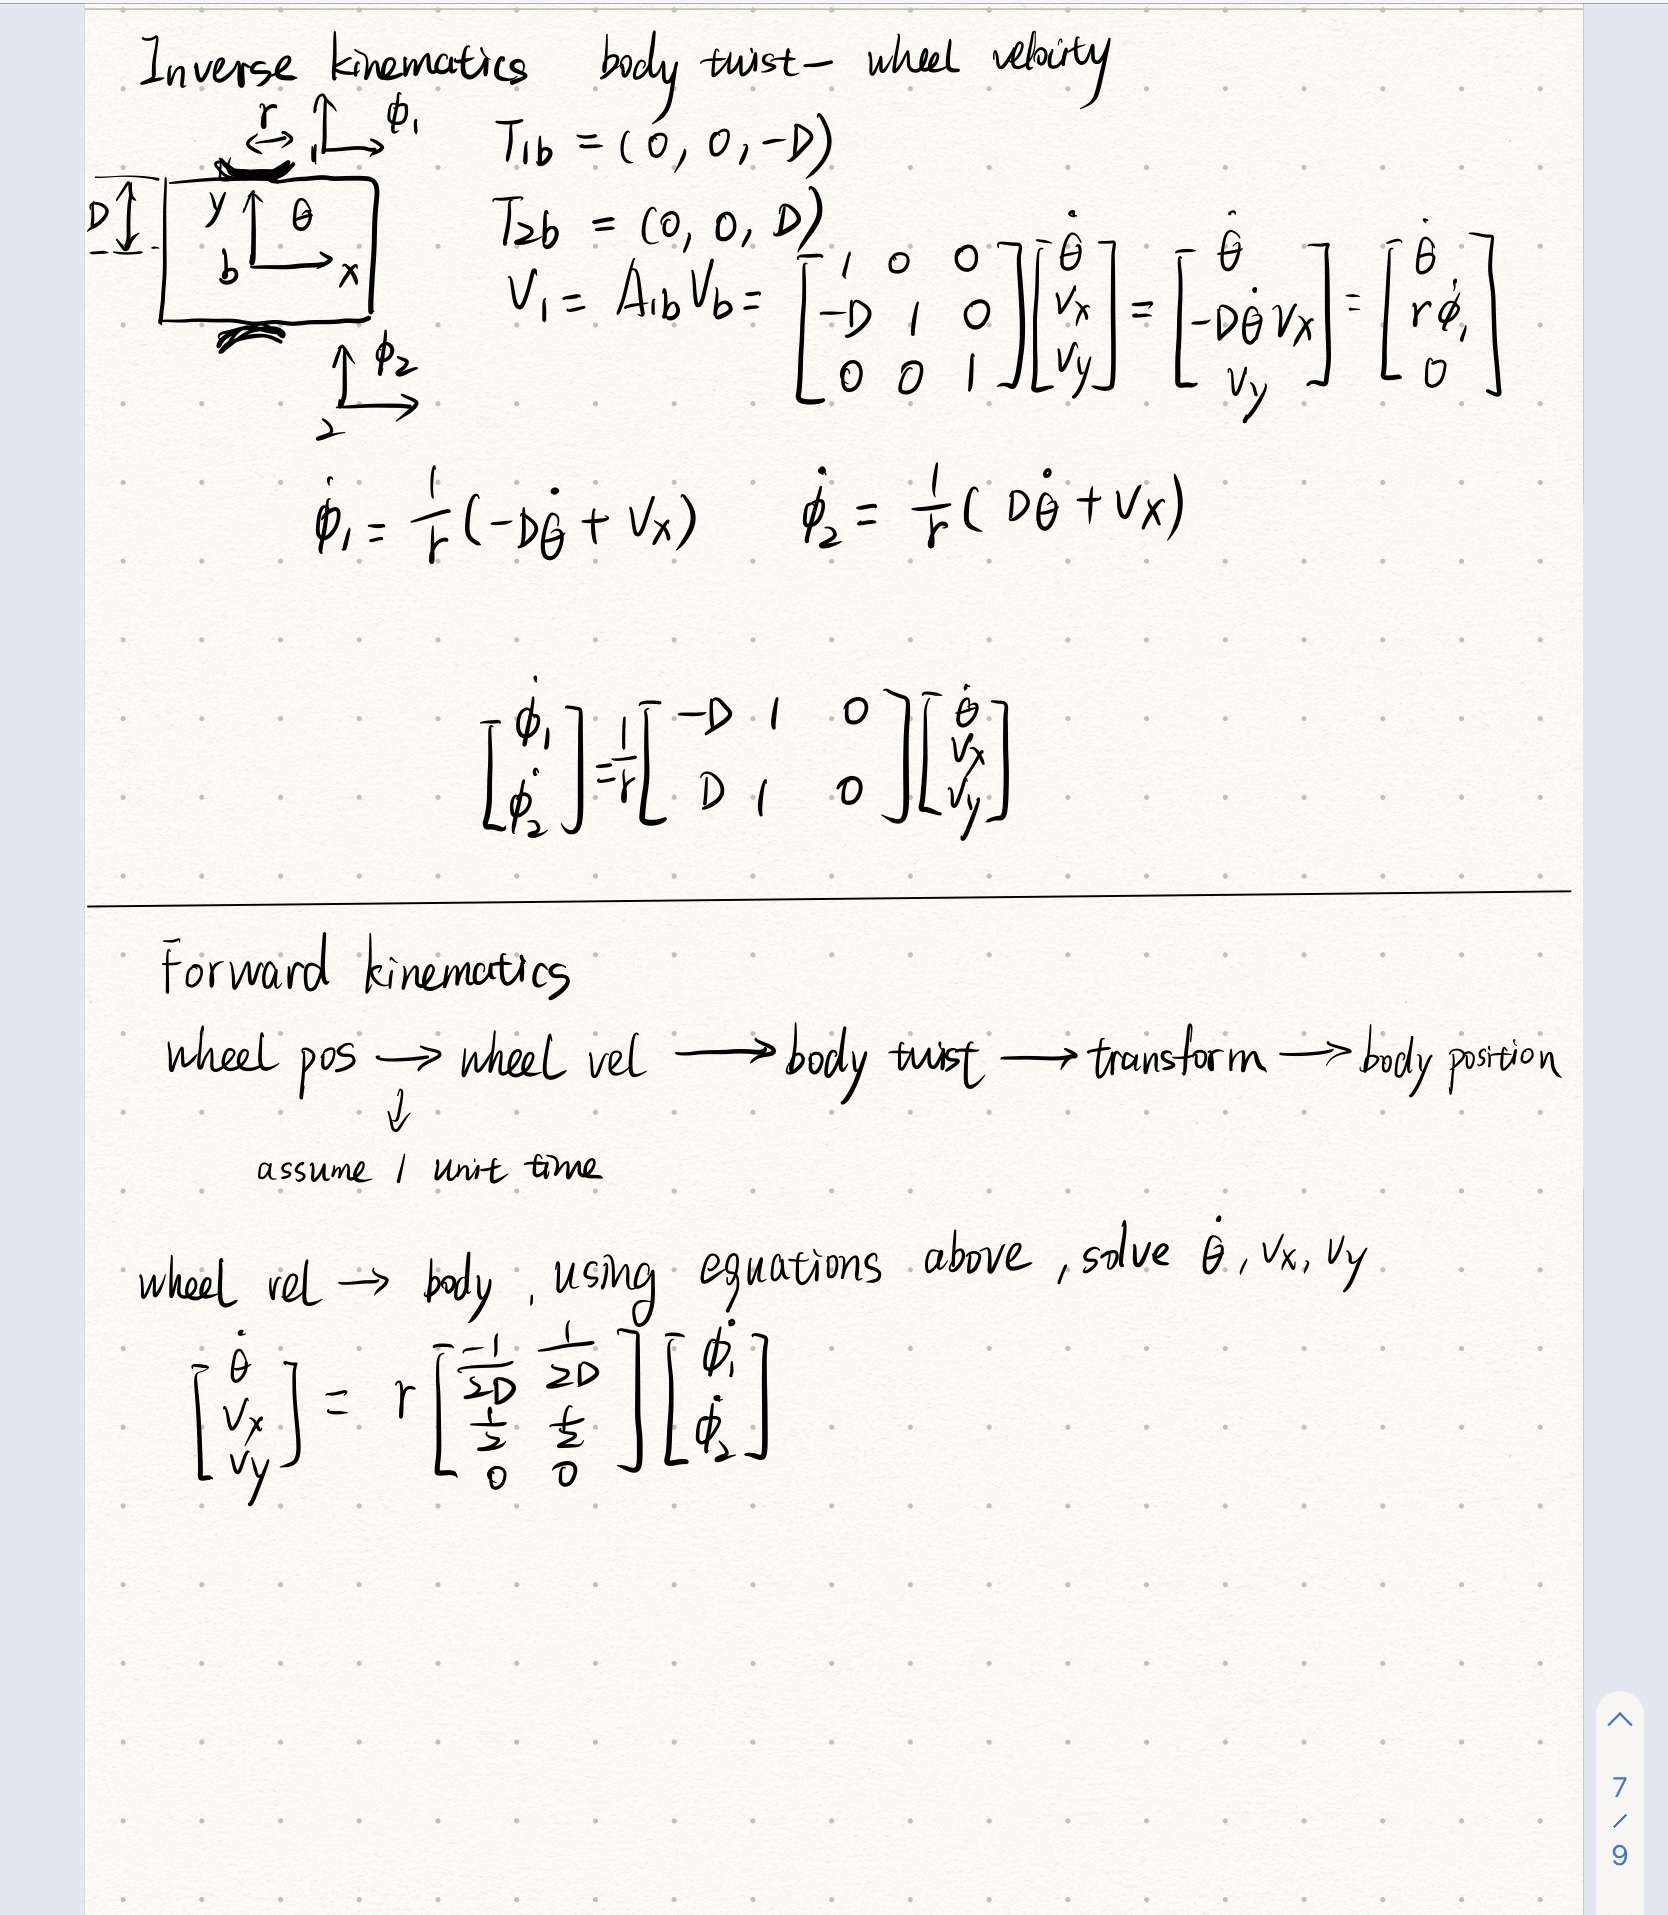 Inverse kinematics body twist – wheel velocity
r ϕ₁
1
D y θ
b x
ϕ₂
2
T₁b = (0, 0, -D)
T₂b = (0, 0, D)
V₁ = A₁b Vb = [1 0 0; -D 1 0; 0 0 1] [θ̇; Vx; Vy] = [θ̇; -Dθ̇ Vx; Vy] = [θ̇; rϕ̇₁; 0]
ϕ̇₁ = 1/r (-Dθ̇ + Vx) ϕ̇₂ = 1/r (Dθ̇ + Vx)
[ϕ̇₁; ϕ̇₂] = 1/r [-D 1 0; D 1 0] [θ̇; Vx; Vy]
Forward kinematics
wheel pos → wheel vel → body twist → transform → body position
↓
assume 1 unit time
wheel vel → body, using equations above, solve θ̇, Vx, Vy
[θ̇; Vx; Vy] = r [-1/2D 1/2D; 1/2 1/2; 0 0] [ϕ̇₁; ϕ̇₂]
7
/
9